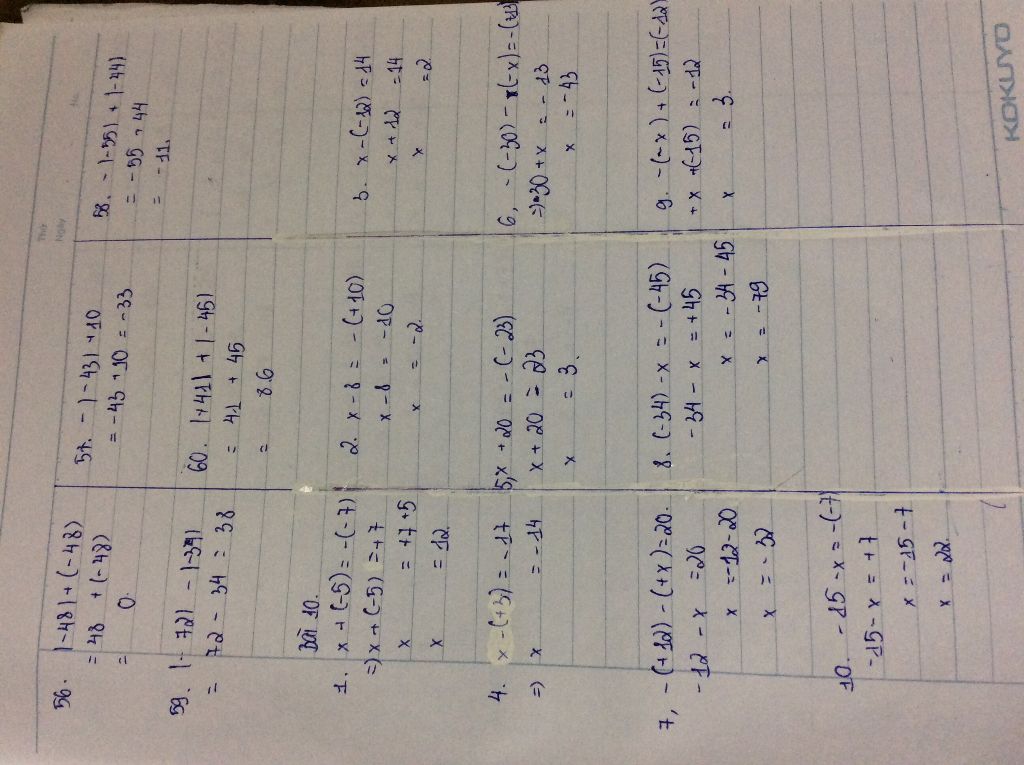 Thứ
Ngày
No.
56. |-48| + (-48)
= 48 + (-48)
= 0.
57. - |-43| + 10
= -43 + 10 = -33
58. - |-55| + |-44|
= -55 + 44
= -11.
59. |-72| - |-34|
= 72 - 34 = 38
60. |+41| + |-45|
= 41 + 45
= 86
Bài 10.
1. x + (-5) = -(-7)
=) x + (-5) = +7
x = +7 +5
x = 12.
2. x - 8 = - (+10)
x - 8 = -10
x = -2.
3. x - (-12) = 14
x + 12 = 14
x = 2
4. x - (+3) = -17
=) x = -14
5, x + 20 = - (-23)
x + 20 = 23
x = 3.
6, - (-30) - (-x) = -(+13)
=) 30 + x = -13
x = -43
7, - (+12) - (+x) = 20.
-12 - x = 20
x = -12 - 20
x = -32
8. (-34) - x = - (-45)
-34 - x = +45
x = -34 - 45
x = -79
9. - (-x) + (-15) = (-12)
+ x + (-15) = -12
x = 3.
10. - 15 - x = -(-7)
-15 - x = +7
x = -15 - 7
x = 22.
KOKUYO